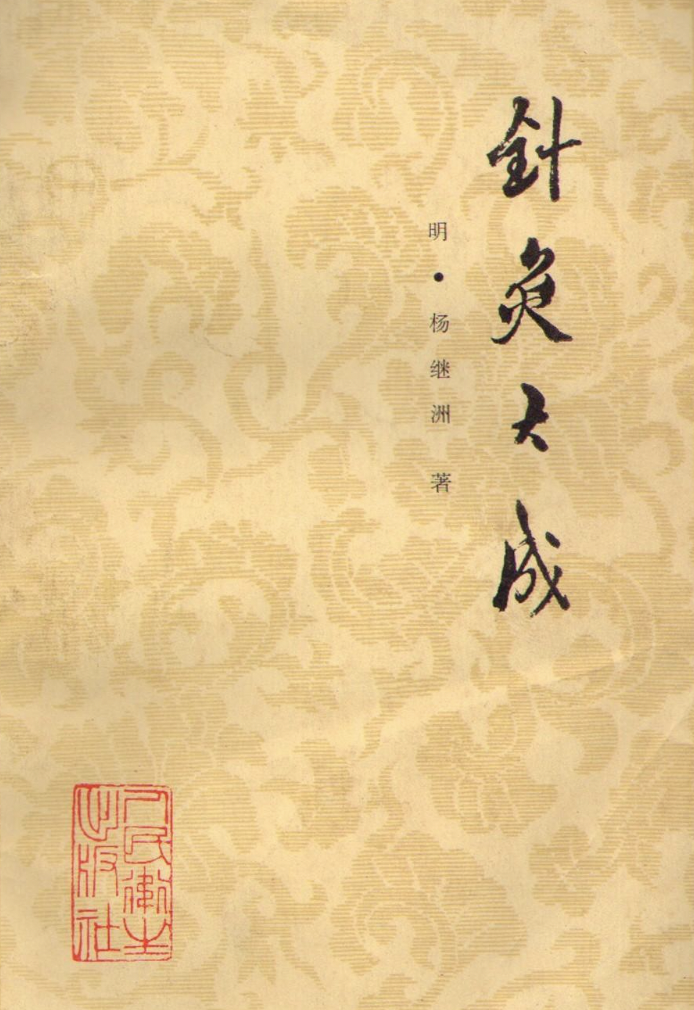 針灸大成
明·杨继洲 著
人民衛生
出版社